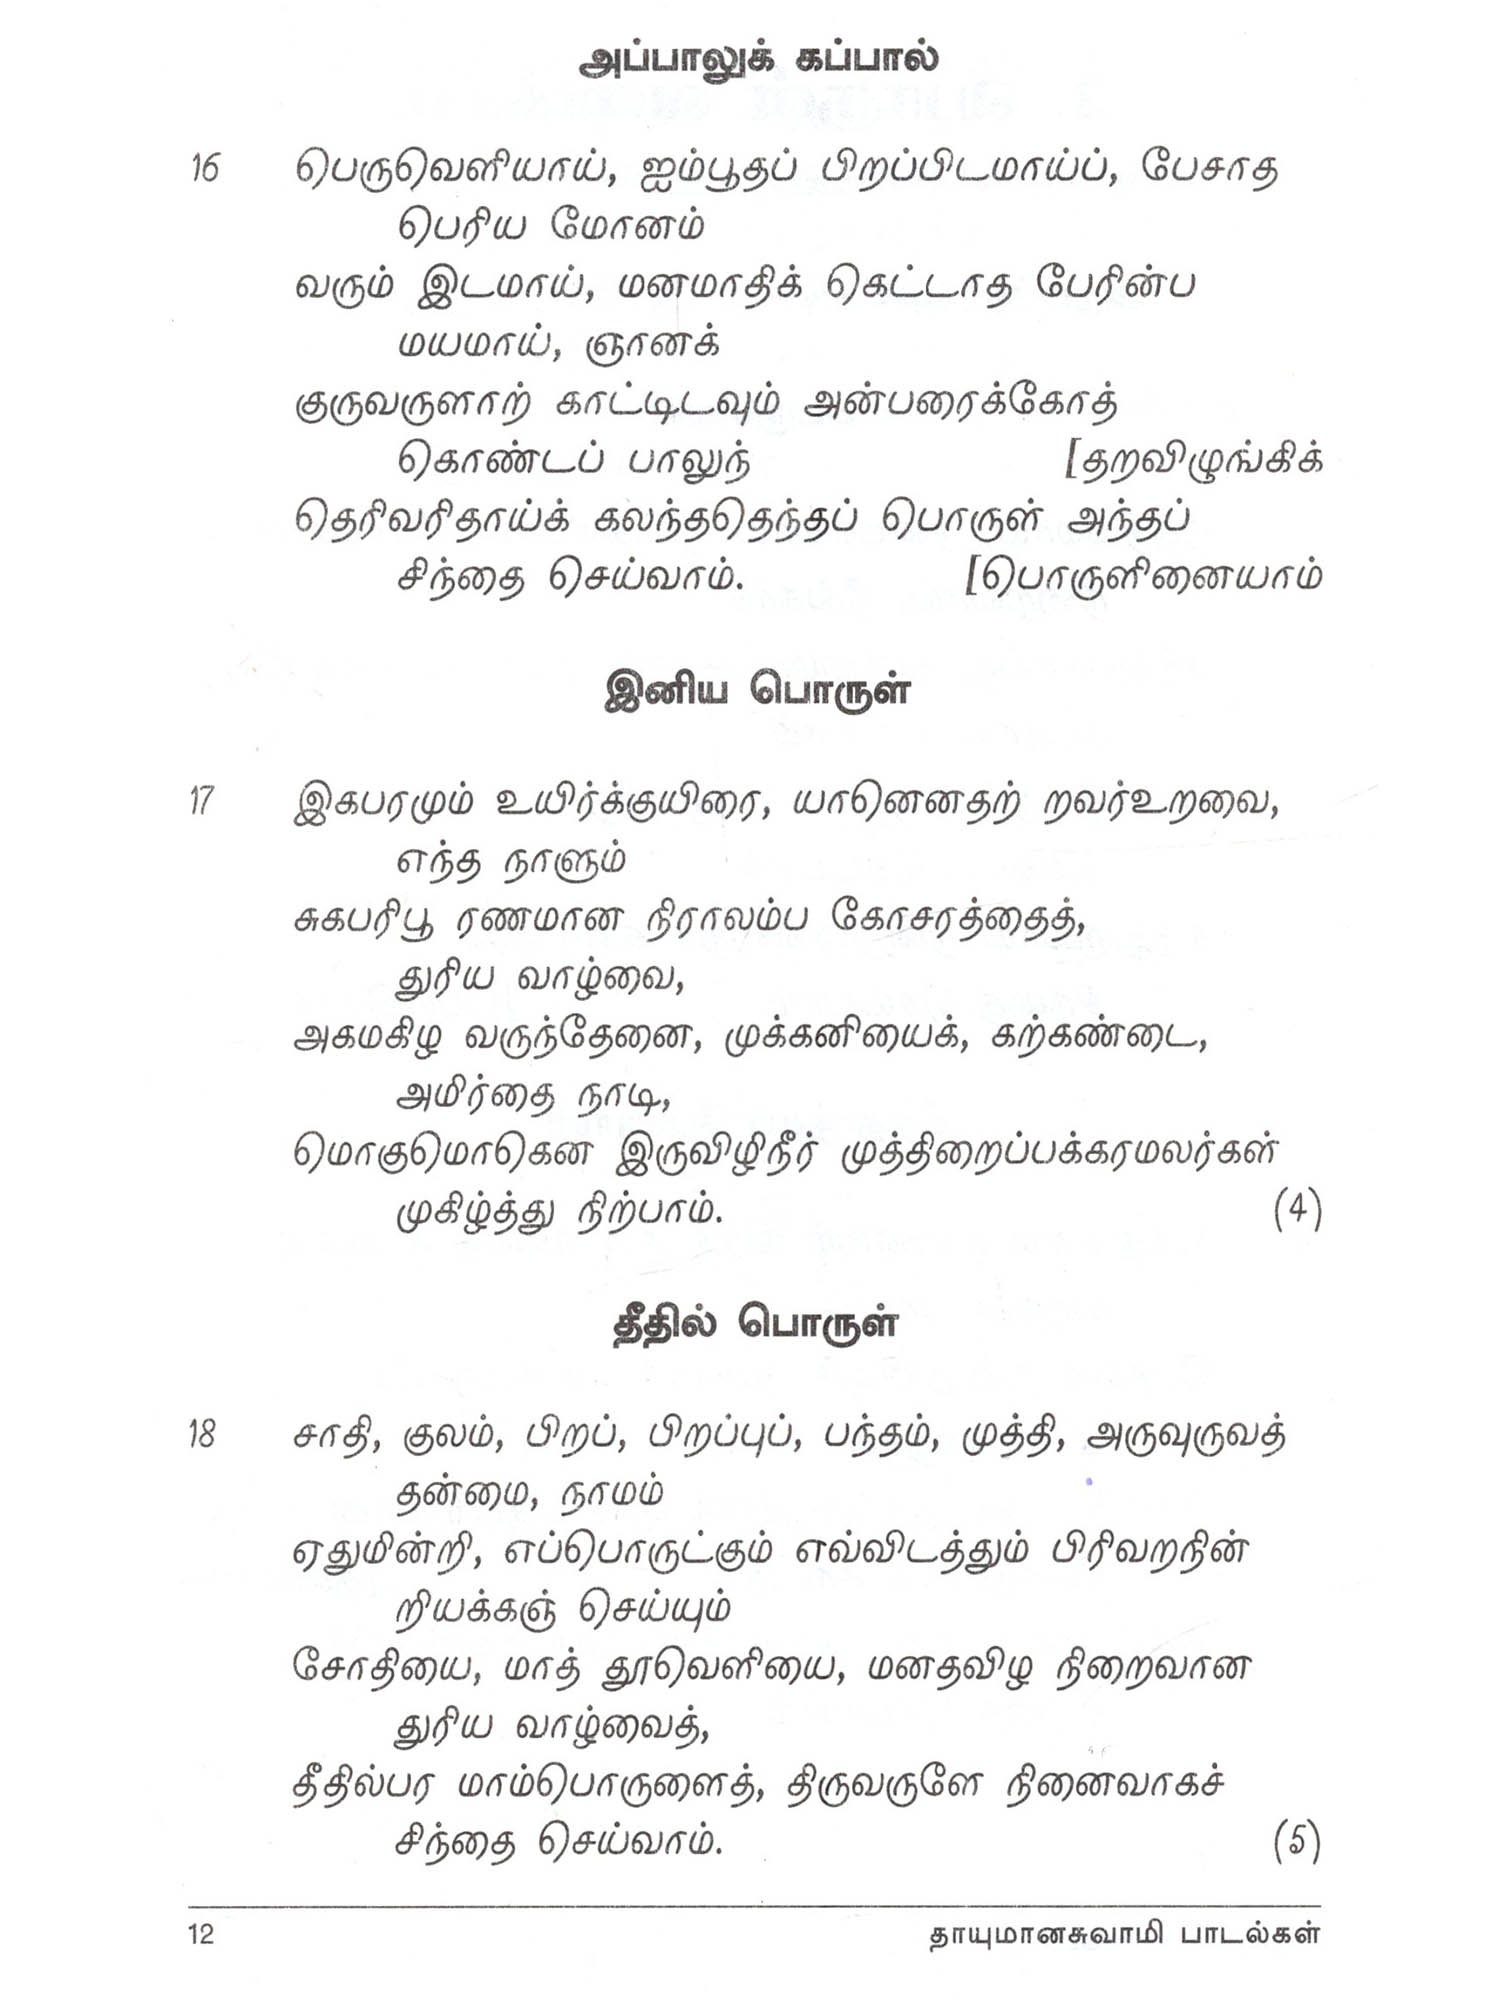 அப்பாலுக் கப்பால்
16 பெருவெளியாய், ஐம்பூதப் பிறப்பிடமாய்ப், பேசாத
பெரிய மோனம்
வரும் இடமாய், மனமாதிக் கெட்டாத பேரின்ப
மயமாய், ஞானக்
குருவருளாற் காட்டிடவும் அன்பரைக்கோத்
கொண்டப் பாலுந் [தறவிழுங்கிக்
தெரிவரிதாய்க் கலந்ததெந்தப் பொருள் அந்தப்
சிந்தை செய்வாம். [பொருளினையாம்
இனிய பொருள்
17 இகபரமும் உயிர்க்குயிரை, யானெனதற் றவர்உறவை,
எந்த நாளும்
சுகபரிபூ ரணமான நிராலம்ப கோசரத்தைத்,
துரிய வாழ்வை,
அகமகிழ வருந்தேனை, முக்கனியைக், கற்கண்டை,
அமிர்தை நாடி,
மொகுமொகென இருவிழிநீர் முத்திறைப்பக்கரமலர்கள்
முகிழ்த்து நிற்பாம். (4)
தீதில் பொருள்
18 சாதி, குலம், பிறப், பிறப்புப், பந்தம், முத்தி, அருவுருவத்
தன்மை, நாமம்
ஏதுமின்றி, எப்பொருட்கும் எவ்விடத்தும் பிரிவறநின்
றியக்கஞ் செய்யும்
சோதியை, மாத் தூவெளியை, மனதவிழ நிறைவான
துரிய வாழ்வைத்,
தீதில்பர மாம்பொருளைத், திருவருளே நினைவாகச்
சிந்தை செய்வாம். (5)
12 தாயுமானசுவாமி பாடல்கள்